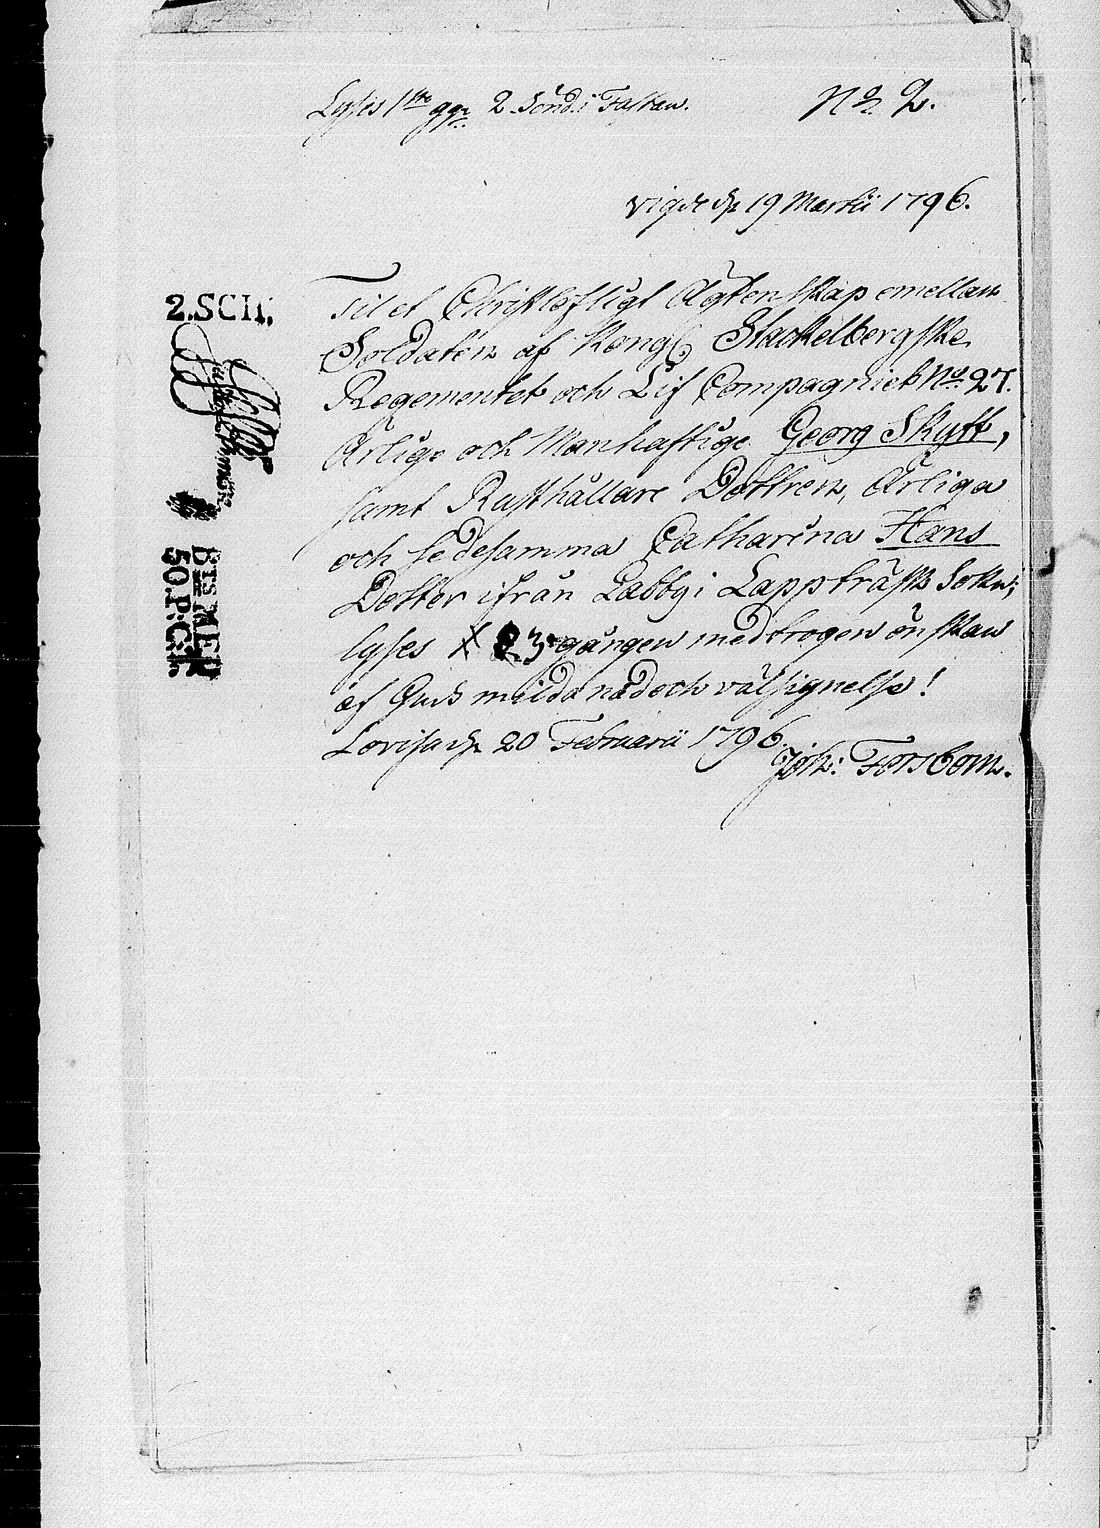 Lyses 1sta ggn 2 Sönd. i Fastan.
No. 2.
vigde d. 19 Martii 1796.
2.SCH.
Til et Christeligt Ägtenskap emellan
Soldaten af Kongl Stackelbergske
Regementet och Lif Compagniet No. 27.
Ärlige och Manhaftige Georg Skytt,
samt Rusthållare Dottren, Ärliga
och sedesamma Catharina Hans
Dotter ifrån Labby i Lappträsk Sokn;
lyses 3 gången med trogen önskan
af Guds milda nåd och välsignelse!
Lovisa d. 20 Februarii 1796.
Joh: Forsbom.